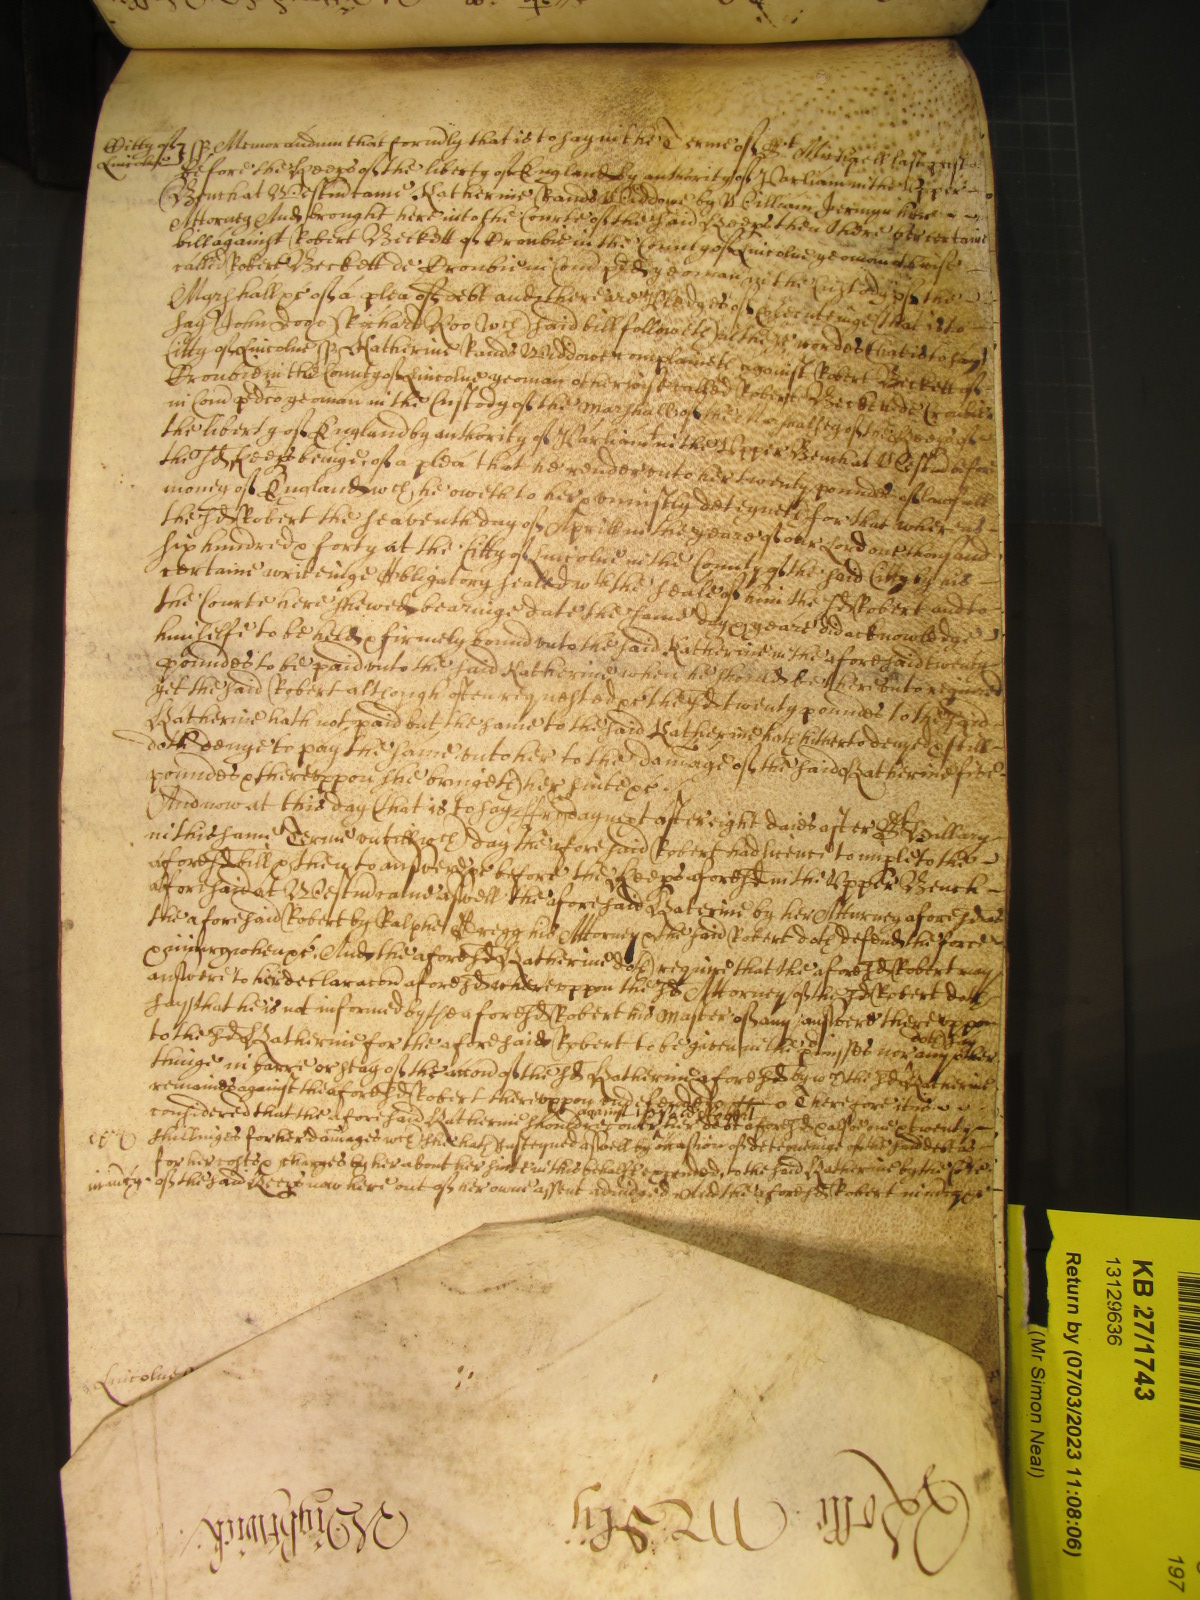 Citty of Lincolne ss Memorandum that formerly that is to say in the Terme of St Michaell last past
before the Keepers of the liberty of England by authority of Parliamt in the Upper
Bench at Westm came Katherine Rands Widdowe by William Jermyn her
Attorney And brought here into the Courte of the said Keeps then there her certaine
bill against Robert Beckett of Cronbie in the County of Lincolne yeoman otherwise
called Robert Beckett de Cronbie in Com pd yeoman in the Custody of the
Marshall &c of a plea of debt and there are pledges of that is to
say John Doo & Richard Roo wch said bill followeth in these wordes that is to say
Citty of Lincolne ss Katherine Rands Widdowe complaineth against Robert Beckett of
Cronbie in the County of Lincolne yeoman otherwise called Robert Beckett de Cronbie
in Com pdco yeoman in the Custody of the Marshall of the Marshallsey of the Keeps of
the liberty of England by authority of Parliamt in the Upper Bench at Westm before
the sd Keeps beinge of a plea that he render unto her twenty poundes of lawfull
money of England wch he oweth to her & uniustly deteyneth for that whereas
the sd Robert the seaventh day of Aprill in the yeare of our Lord one thousand
six hundred & forty at the Citty of Lincolne in the County of the said Citty by his
certaine writeinge Obligatory sealed wth the seale of him the sd Robert and to
the Courte here shewed bearinge date the same day & yeare did acknowledge
himselfe to be held & firmely bound unto the said Katherine in the aforesaid twenty
poundes to be paid unto the said Katherine when he should be thereunto required
yet the said Robert although often requested &c the sd twenty poundes to the said
Katherine hath not paid but the same to the said Katherine hath hitherto denyed & still
doth denye to pay the same unto her to the damage of the said Katherine five
poundes & thereuppon she bringeth her suite &c.
And now at this day that is to say ffryday next after eight daies after St Hillary
in this same Terme untill wch day the aforesaid Robert had licence to imple to the
aforesd bill & then to answere &c before the Keeps aforesd in the Upper Bench
aforesaid at Westm came aswell the aforesaid Katerine by her Atturney aforesd as
the aforesaid Robert by Ralphe Gregg his Attorney & the said Robert doth defend the force
& iniury when &c. And the aforesd Katherine doth require that the aforesd Robert may
answere to her declaracon aforesd whereuppon the sd Attorney of the sd Robert doth
say that he is not informed by the aforesd Robert his Master of any answere thereuppon
to the sd Katherine for the aforesaid Robert to be given in the pmisses nor any other
thinge in barre or stay of the accon of the sd Katherine aforesd by wch the sd Katherine
remaines against the aforesd Robert thereuppon undefended Therefore it is
considered that the aforesaid Katherine should recover against the said Robert her debt aforesd & alsoe twenty
shillinges for her damages wch she hath susteyned aswell by occasion of deteyninge of the said debt as
for her costes & charges by her about her suite in this behalfe expended to the said Katherine by the
of the said Keeps now here out of her owne assent adiudged And the aforesd Robert in mercy &c
in mcy
Lincolne
Rotli Mr Sky
Wightwick
KB 27/1743
13129636
Return by (07/03/2023 11:08:06)
(Mr Simon Neal)
197